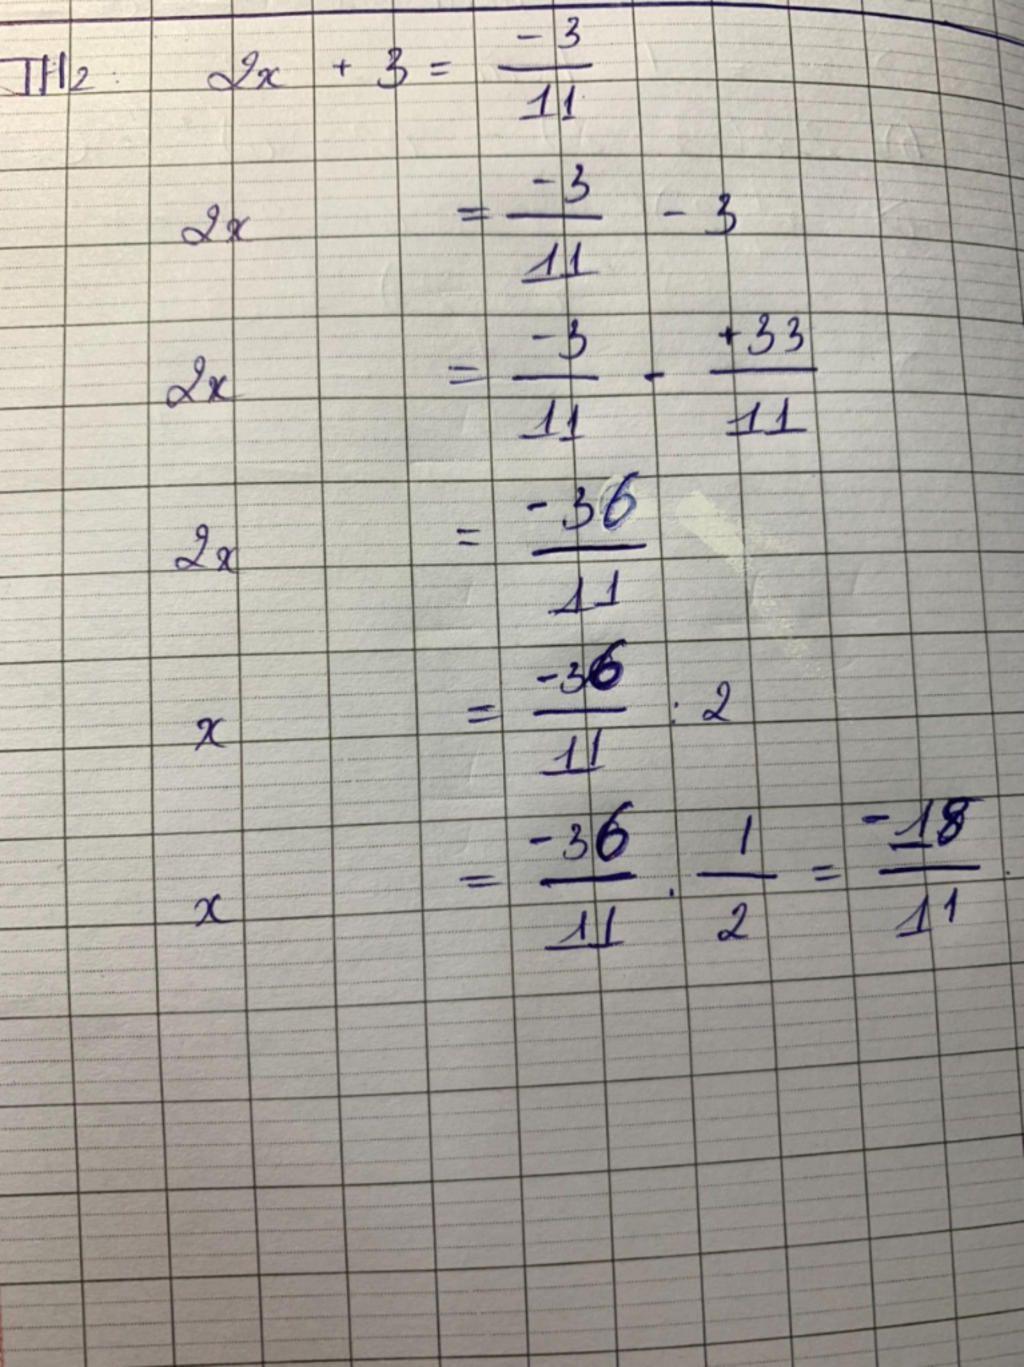 TH2: 2x + 3 = -3/11
2x = -3/11 - 3
2x = -3/11 - +33/11
2x = -36/11
x = -36/11 : 2
x = -36/11 . 1/2 = -18/11.